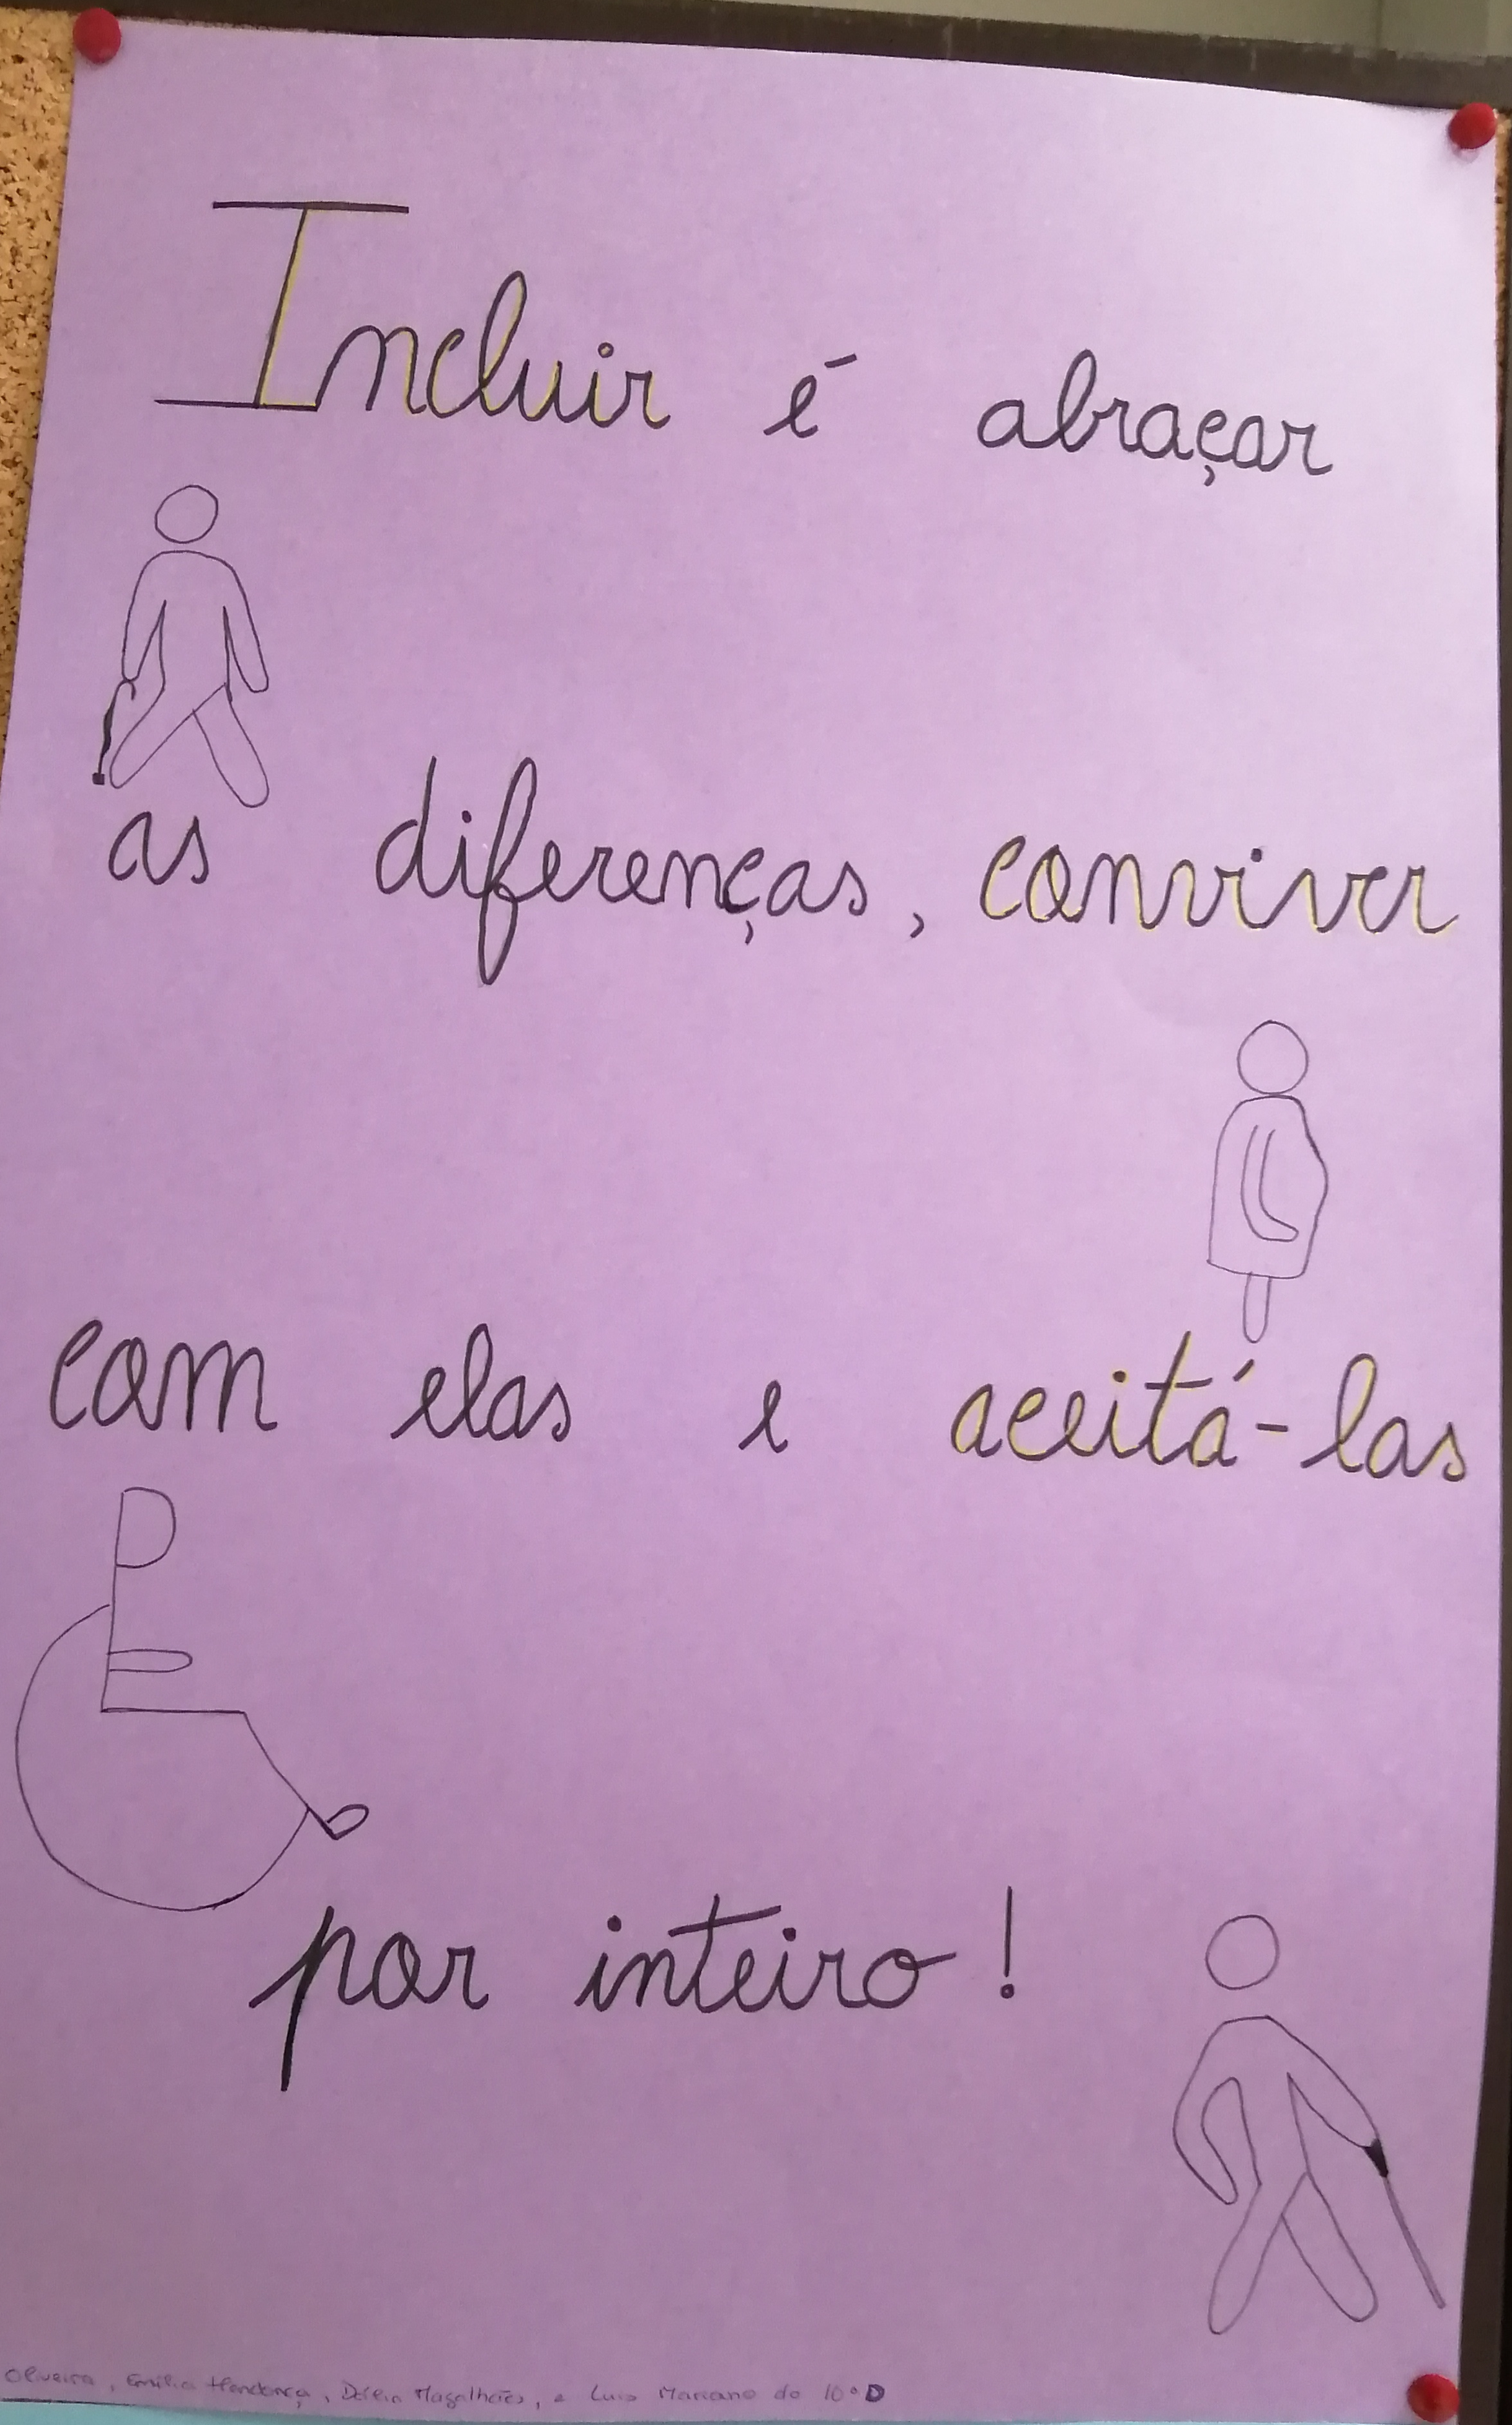 Incluir é abraçar
as diferenças, conviver
com elas e aceitá-las
por inteiro!
Oliveira, Emília Mendonça, Magalhães, e Luis Mariano do 10º D